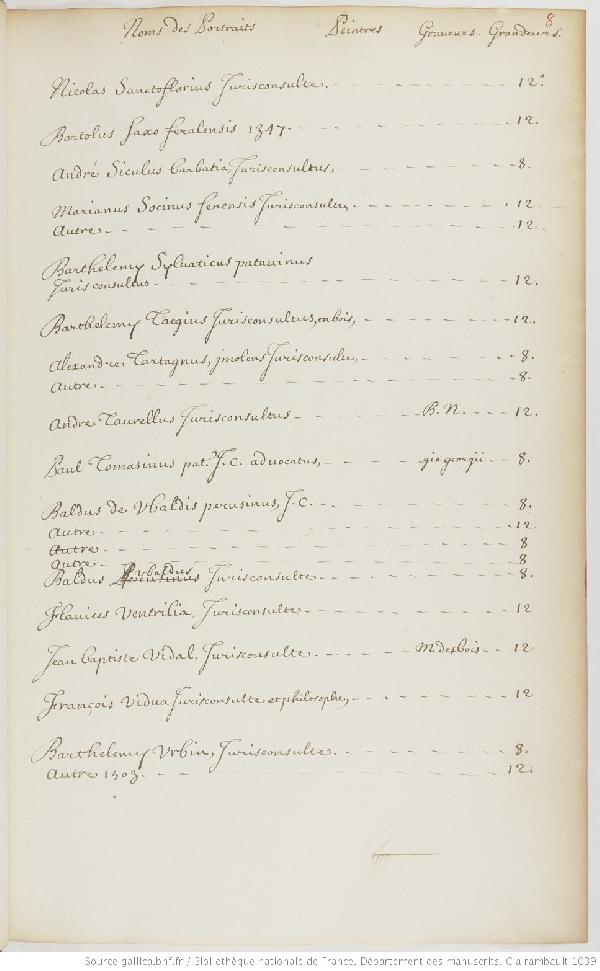 8
Noms des Portraits Peintres Graveurs. Grandeurs.
Nicolas Sanctoflorius Jurisconsulte. 12.
Bartolus saxo feralensis 1347. 12.
André Siculus barbatia, Jurisconsultus, 8.
Marianus Socinus senensis Jurisconsulte, 12
Autre 12.
Barthelemy Syluaticus patauinus
Juris consultus 12.
Barthelemy Taegius Jurisconsultus, en bois, 12.
Alexandre Tartagnus, jmolens Jurisconsulu, 8.
Autre 8.
Andre Taurellus Jurisconsultus B. N. 12.
Paul Tomasinus pat. J. C. advocatus, gio georgii 8.
Baldus de Vbaldis perusinus, J. C. 8.
Autre 12
Autre 8
Autre 8
Baldus vbaldus Jurisconsulte 8.
Flavius Ventrilia, Jurisconsulte 12
Jean baptiste Vidal, Jurisconsulte. M. desbois 12
François Vidua Jurisconsulte et philosophe, 12
Barthelemy Vrbin, Jurisconsulte. 8.
Autre 1503. 12.
Source gallica.bnf.fr / Bibliothèque nationale de France. Département des manuscrits. Clairambault 1039